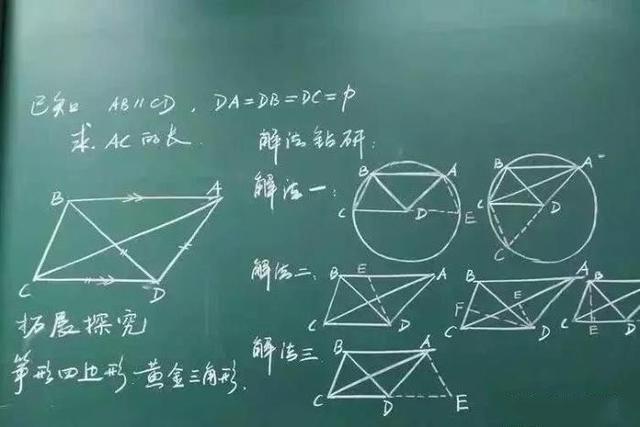 已知 AB∥CD, DA=DB=DC=p
求 AC的长
解法钻研:
解法一:
B A C D E
B A C D C
B A C D
解法二: B E A C D
B A F E C D
B C E
拓展探究
筝形四边形 黄金三角形.
解法三 B A C D E